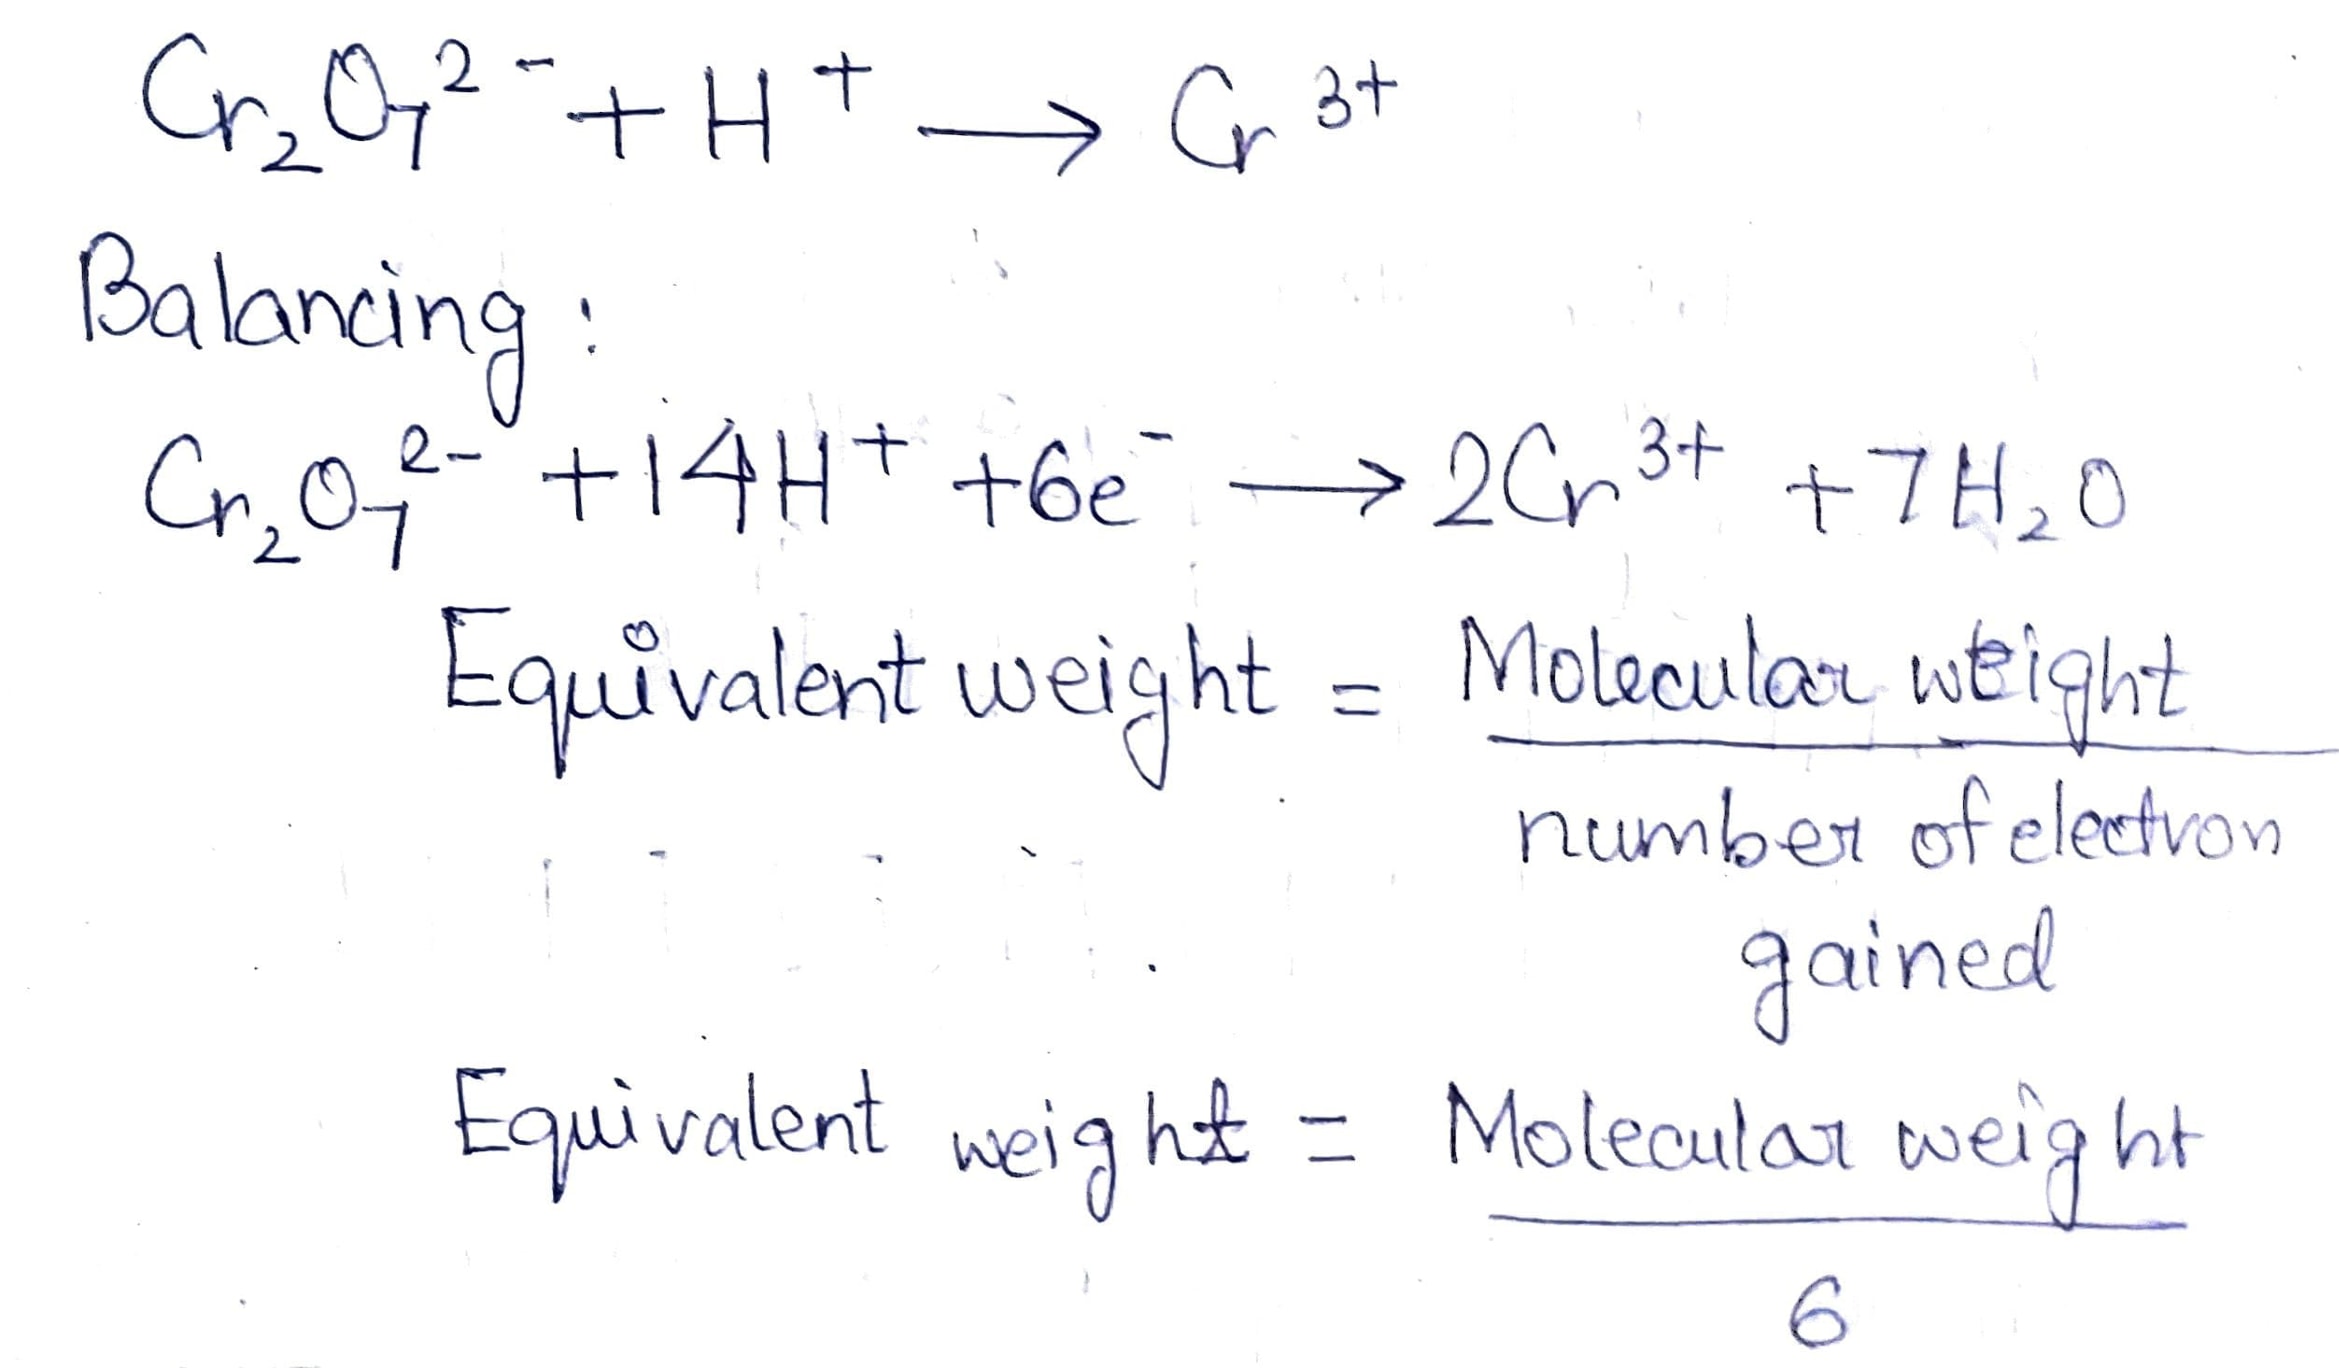 Cr₂O₇²⁻ + H⁺ → Cr³⁺
Balancing :
Cr₂O₇²⁻ + 14H⁺ + 6e⁻ → 2Cr³⁺ + 7H₂O
Equivalent weight = Molecular weight
number of electron
gained
Equivalent weight = Molecular weight
6